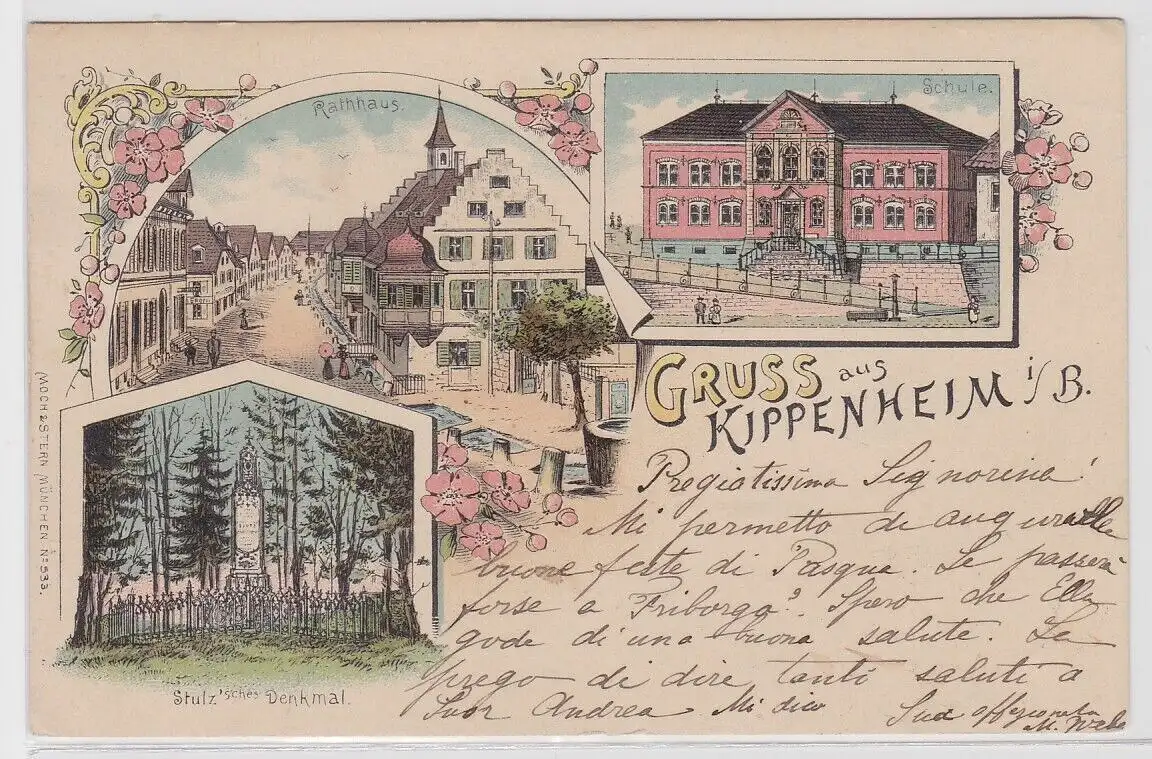 Rathhaus.
Schule.
GRUSS aus
KIPPENHEIM i/B.
(MOCH & STERN MÜNCHEN No 533.
Stulz'sches Denkmal.
Pregiatissima Signorina!
Mi permetto di augurarlle
buone feste di Pasqua. Le passerà
forse a Friborgo? Spero che Ella
gode di una buona salute. La
prego di dire tanti saluti a
Suor Andrea Mi dico
Sua affezionata
M.